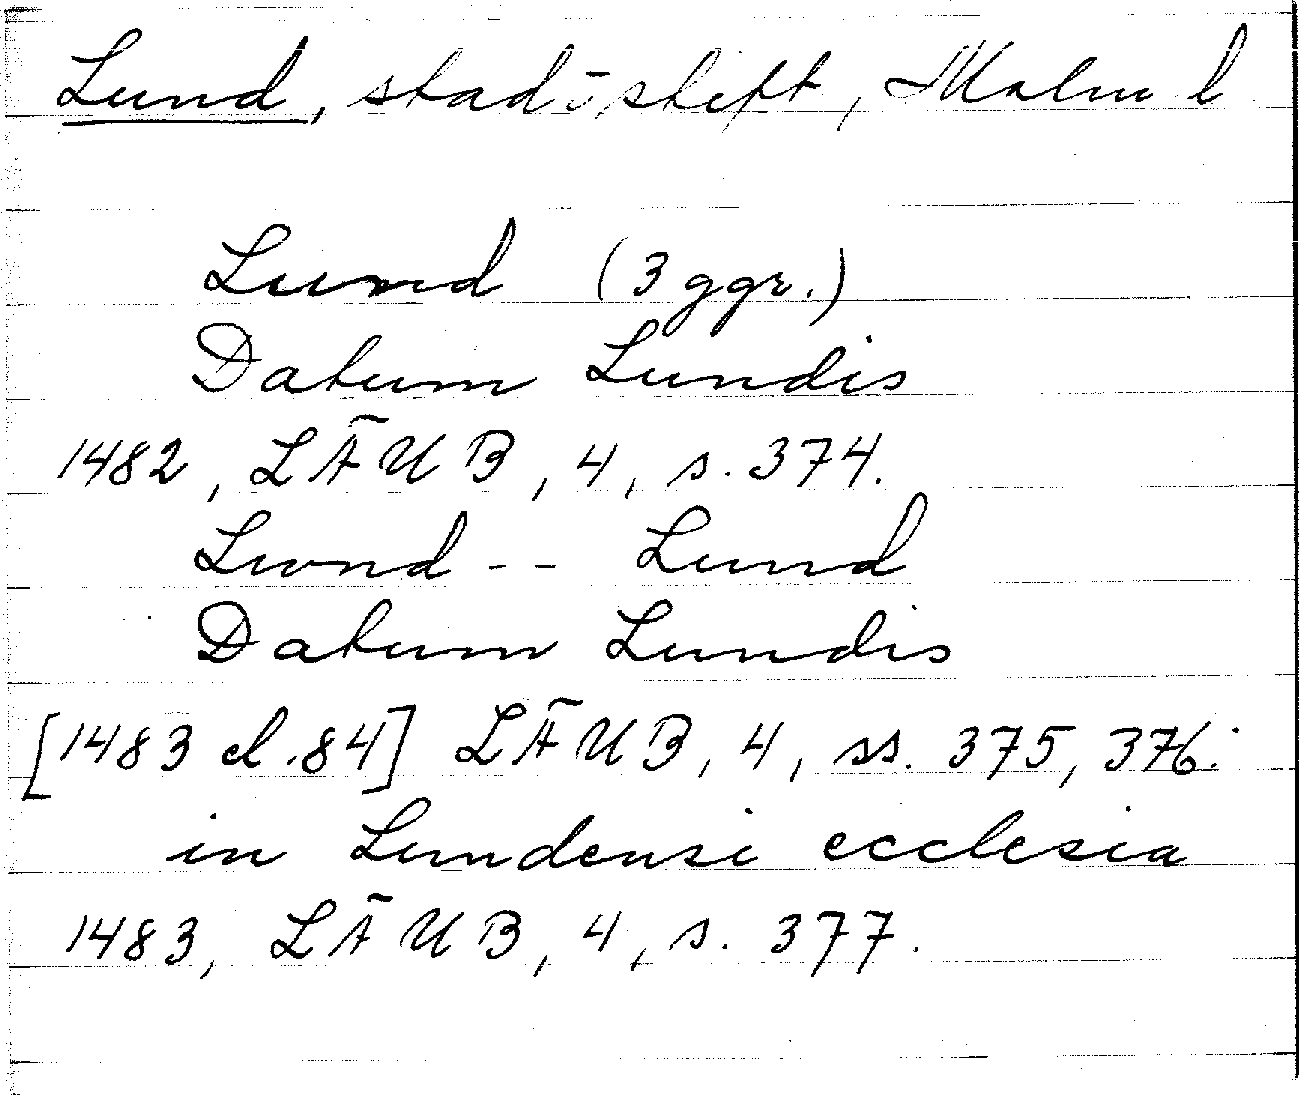 Lund, stad o. stift, Malm l
Lund (3 ggr.)
Datum Lundis
1482, LÄUB, 4, s. 374.
Lwnd -- Lund
Datum Lundis
[1483 el. 84] LÄUB, 4, ss. 375, 376.
in Lundensi ecclesia
1483, LÄUB, 4, s. 377.